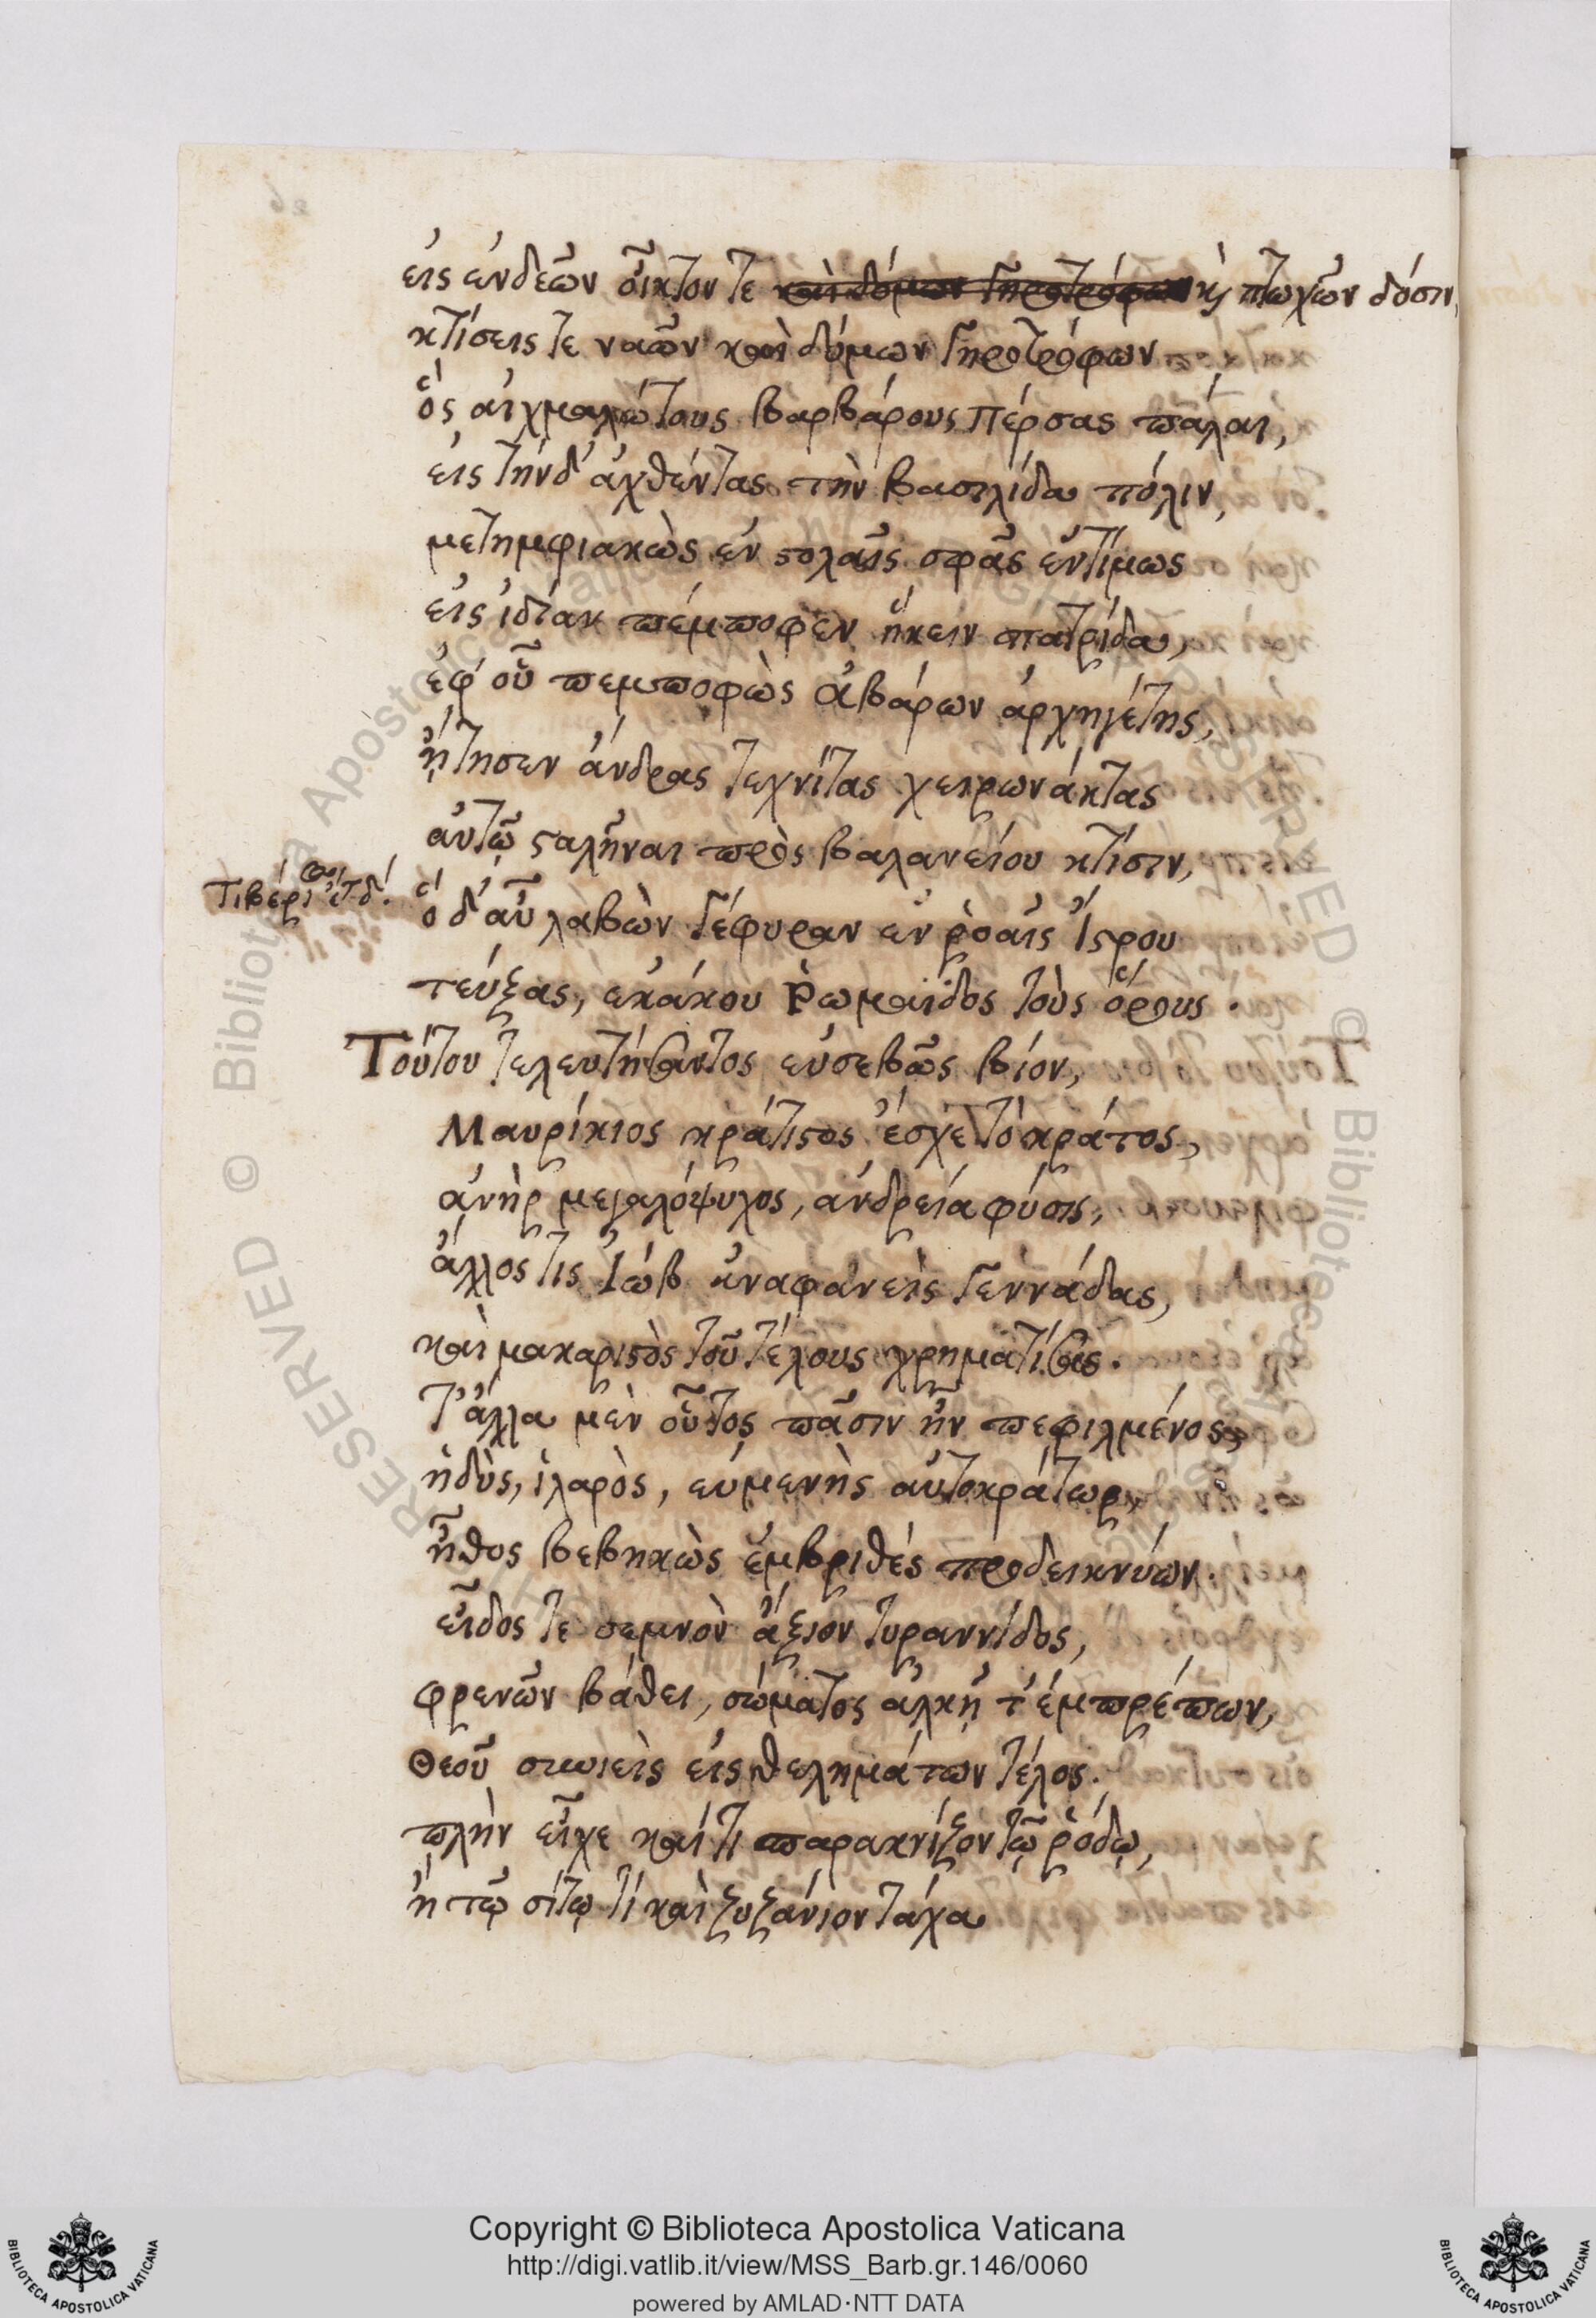 εἰς ἐνδεῶν οἶκτον τε καὶ δόμων γηροτρόφων κ πτωχῶν δόσιν,
κτίσεις τε ναῶν καὶ δόμων γηροτρόφων
ὃς αἰχμαλώτους βαρβάρους πέρσας πάλαι,
εἰς τήνδ' ἀχθέντας τὴν βασιλίδα πόλιν,
μετημφιακὼς ἐν στολαῖς σφᾶς ἐντίμως
εἰς ἰδίαν πέπομφεν ἥκειν πατρίδα,
ἐφ' οὗ πεμπομφὼς ἀβάρων ἀρχηγέτης,
ᾔτησεν ἄνδρας τεχνίτας χειρωνάκτας
αὐτῷ σταλῆναι πρὸς βαλανείου κτίσιν,
Τιβέρι ἔτ δ'.
ὁ δ' αὖ λαβὼν γέφυραν ἐν ῥοαῖς Ἴστρου
τεύξας, ἐκάκου Ῥωμαΐδος τοὺς ὅρους.
Τούτου τελευτήσαντος εὐσεβῶς βίον,
Μαυρίκιος κράτιστος ἔσχε τὸ κράτος,
ἀνὴρ μεγαλόψυχος, ἀνδρεία φύσις,
ἄλλος τις Ἰὼβ ἀναφανεὶς γεννάδας,
καὶ μακαριστὸς τοῦ τέλους χρηματίσας.
Τ' ἄλλα μὲν οὗτος πᾶσιν ἦν πεφιλμένος,
ἡδὺς, ἱλαρὸς, εὐμενὴς αὐτοκράτωρ,
ἦθος βεβηκὼς ἐμβριθές προδεικνύων.
εἶδος τε σεμνὸν ἄξιον τυραννίδος,
φρενῶν βάθει, σώματος ἀλκῇ τ' ἐμπρέπων,
Θεοῦ συνιεὶς εἰς θελημάτων τέλος.
πλὴν εἶχε καί τι παρακνίζον τῷ ῥόδῳ,
ἢ τῷ σίτῳ τί καὶ ζυζάνιον τάχα
Copyright © Biblioteca Apostolica Vaticana
http://digi.vatlib.it/view/MSS_Barb.gr.146/0060
powered by AMLAD·NTT DATA